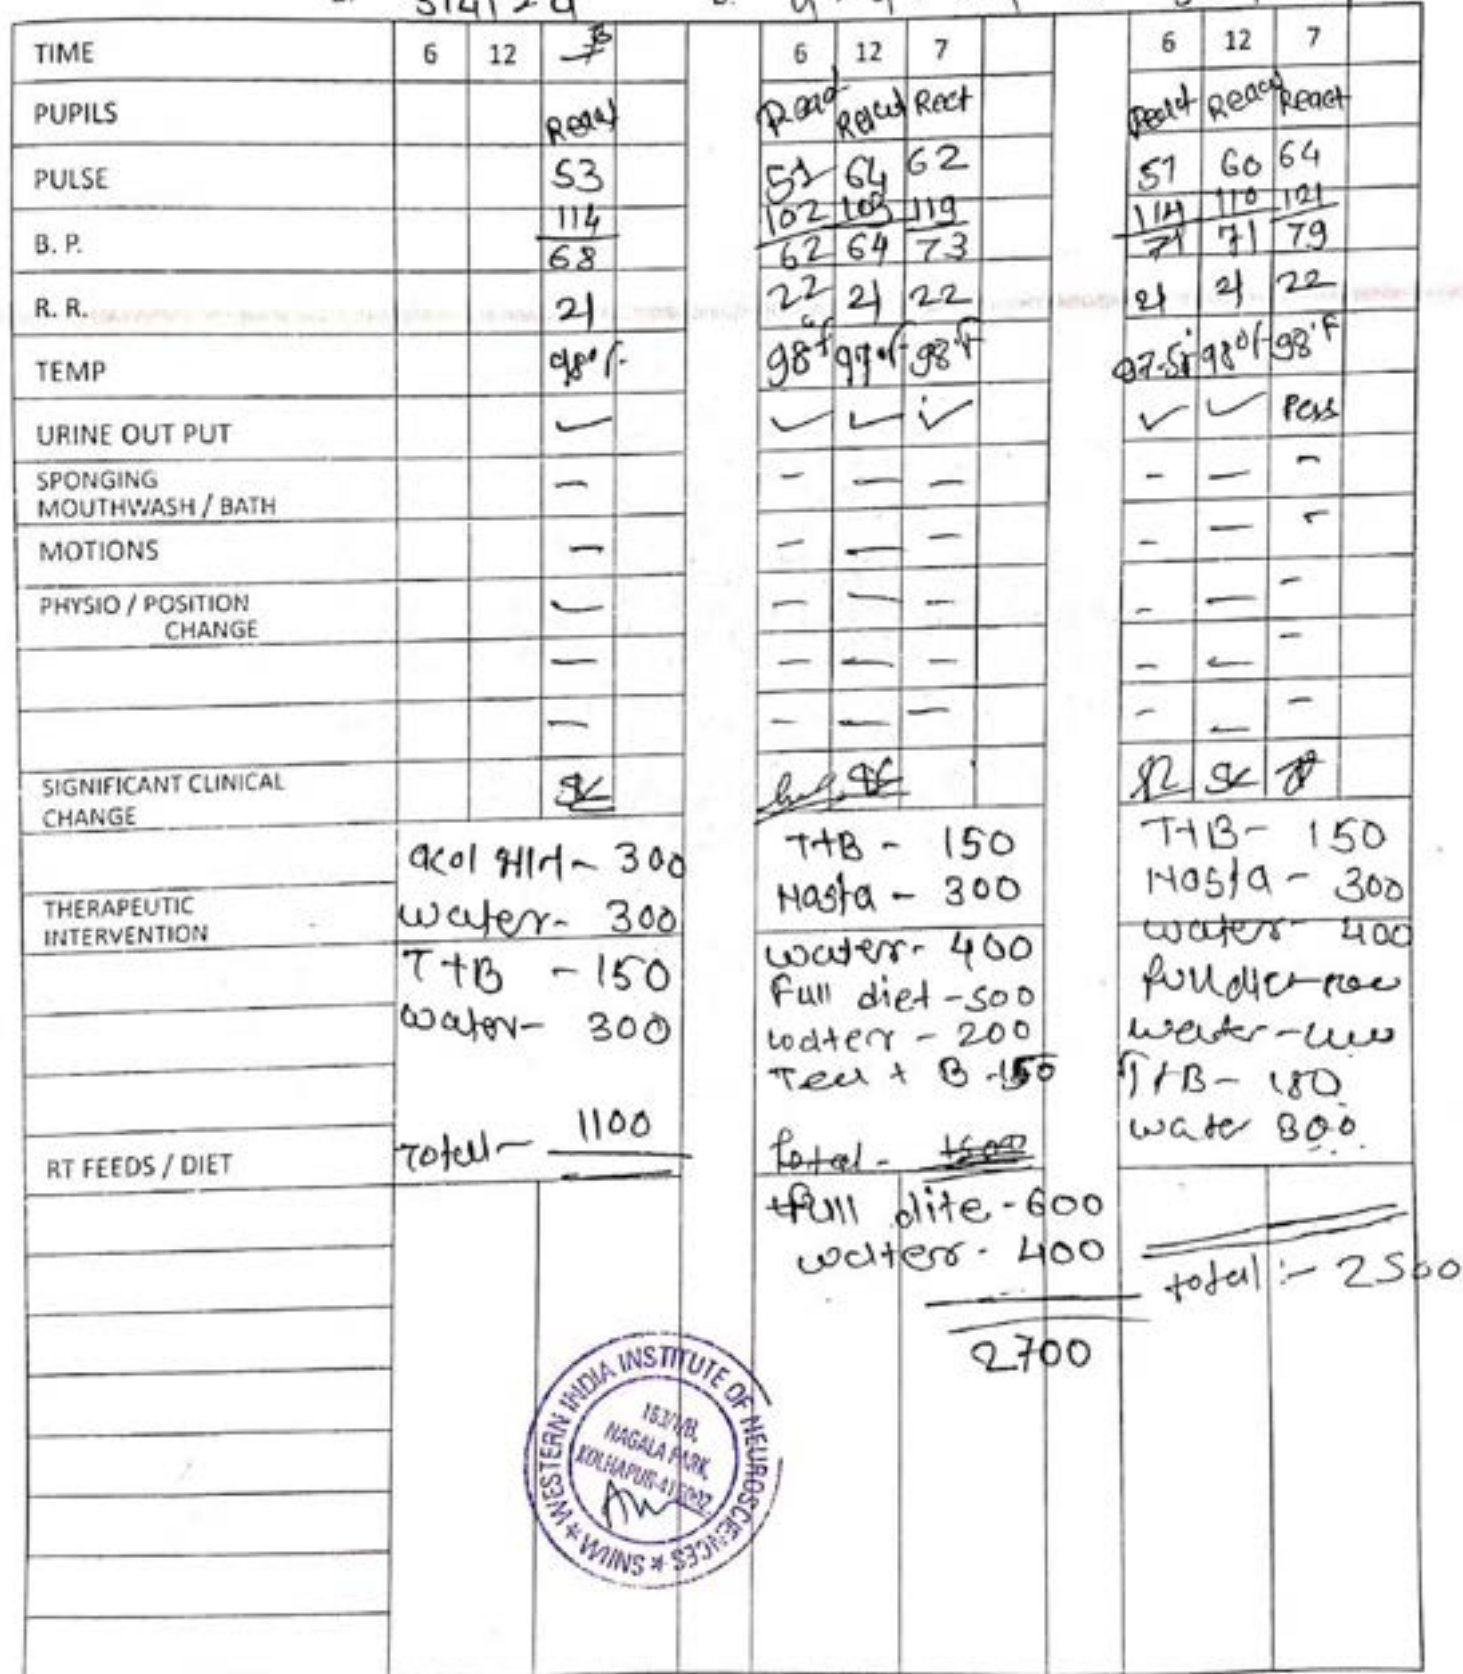 3/4/24
TIME 6 12 7 6 12 7 6 12 7
PUPILS React React React Rect React React React
PULSE 53 51 64 62 57 60 64
B. P. 114/68 102/62 103/64 119/73 114/71 110/71 121/79
R. R. 21 22 21 22 21 21 22
TEMP 98°f 98°f 97°f 98°F 97.5f 98°f 98°F
URINE OUT PUT ✓ ✓ ✓ ✓ ✓ ✓ Pass
SPONGING
MOUTHWASH / BATH - - - - - - -
MOTIONS - - - - - - -
PHYSIO / POSITION
CHANGE - - - - - -
SIGNIFICANT CLINICAL
CHANGE
THERAPEUTIC
INTERVENTION
RT FEEDS / DIET
- 300
water - 300
T+B - 150
water - 300
Total - 1100
T+B - 150
Nasta - 300
water - 400
Full diet - 500
water - 200
Tea + B - 150
Total -
+full dite - 600
water - 400
2700
T+B - 150
Nasta - 300
water - 400
full diet
water
T+B -
water 300
total :- 2500
WESTERN INDIA INSTITUTE OF NEUROSCIENCES * WIINS *
153/1/B,
NAGALA PARK,
KOLHAPUR-